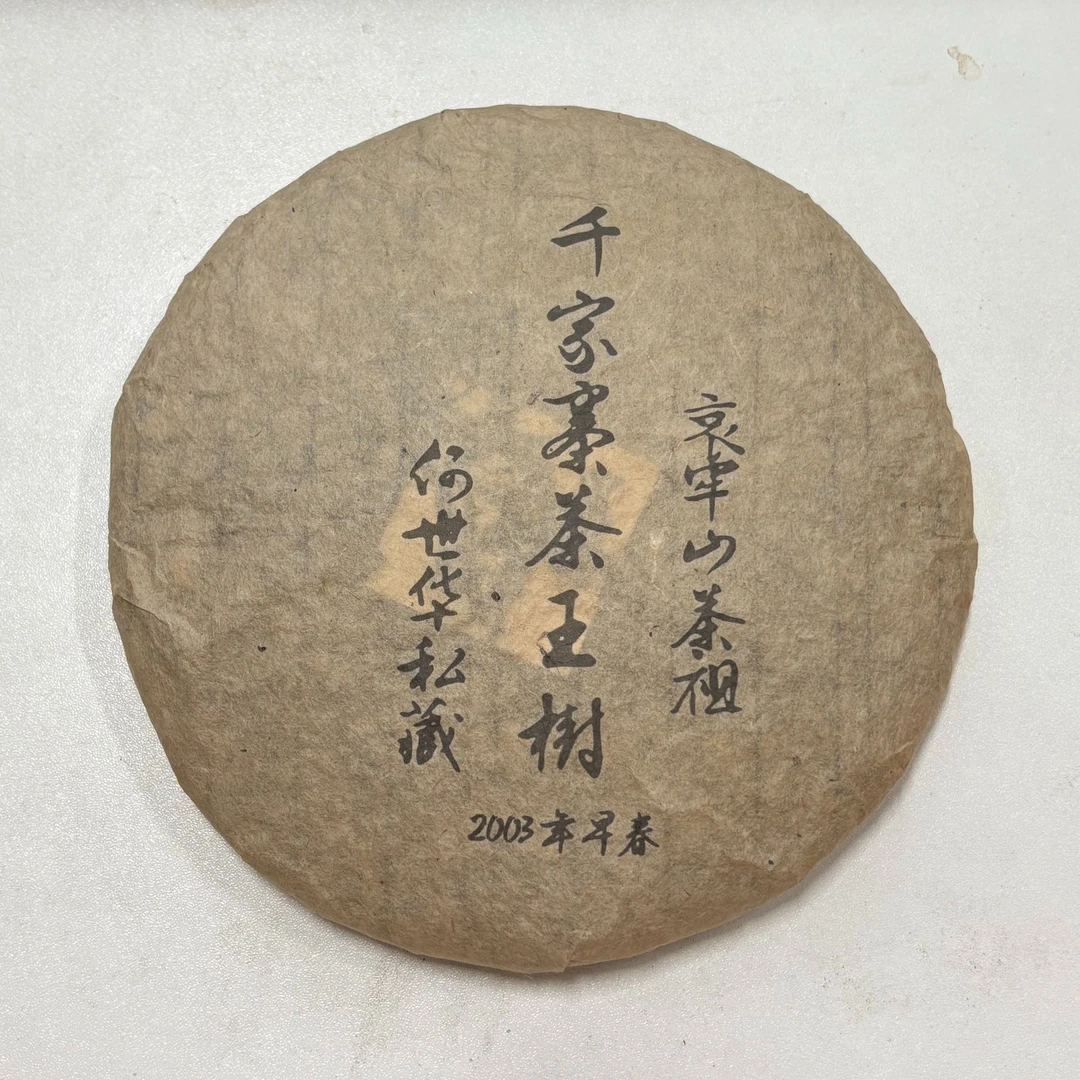 哀牢山茶祖
千家寨茶王樹
何世华私藏
2003年早春